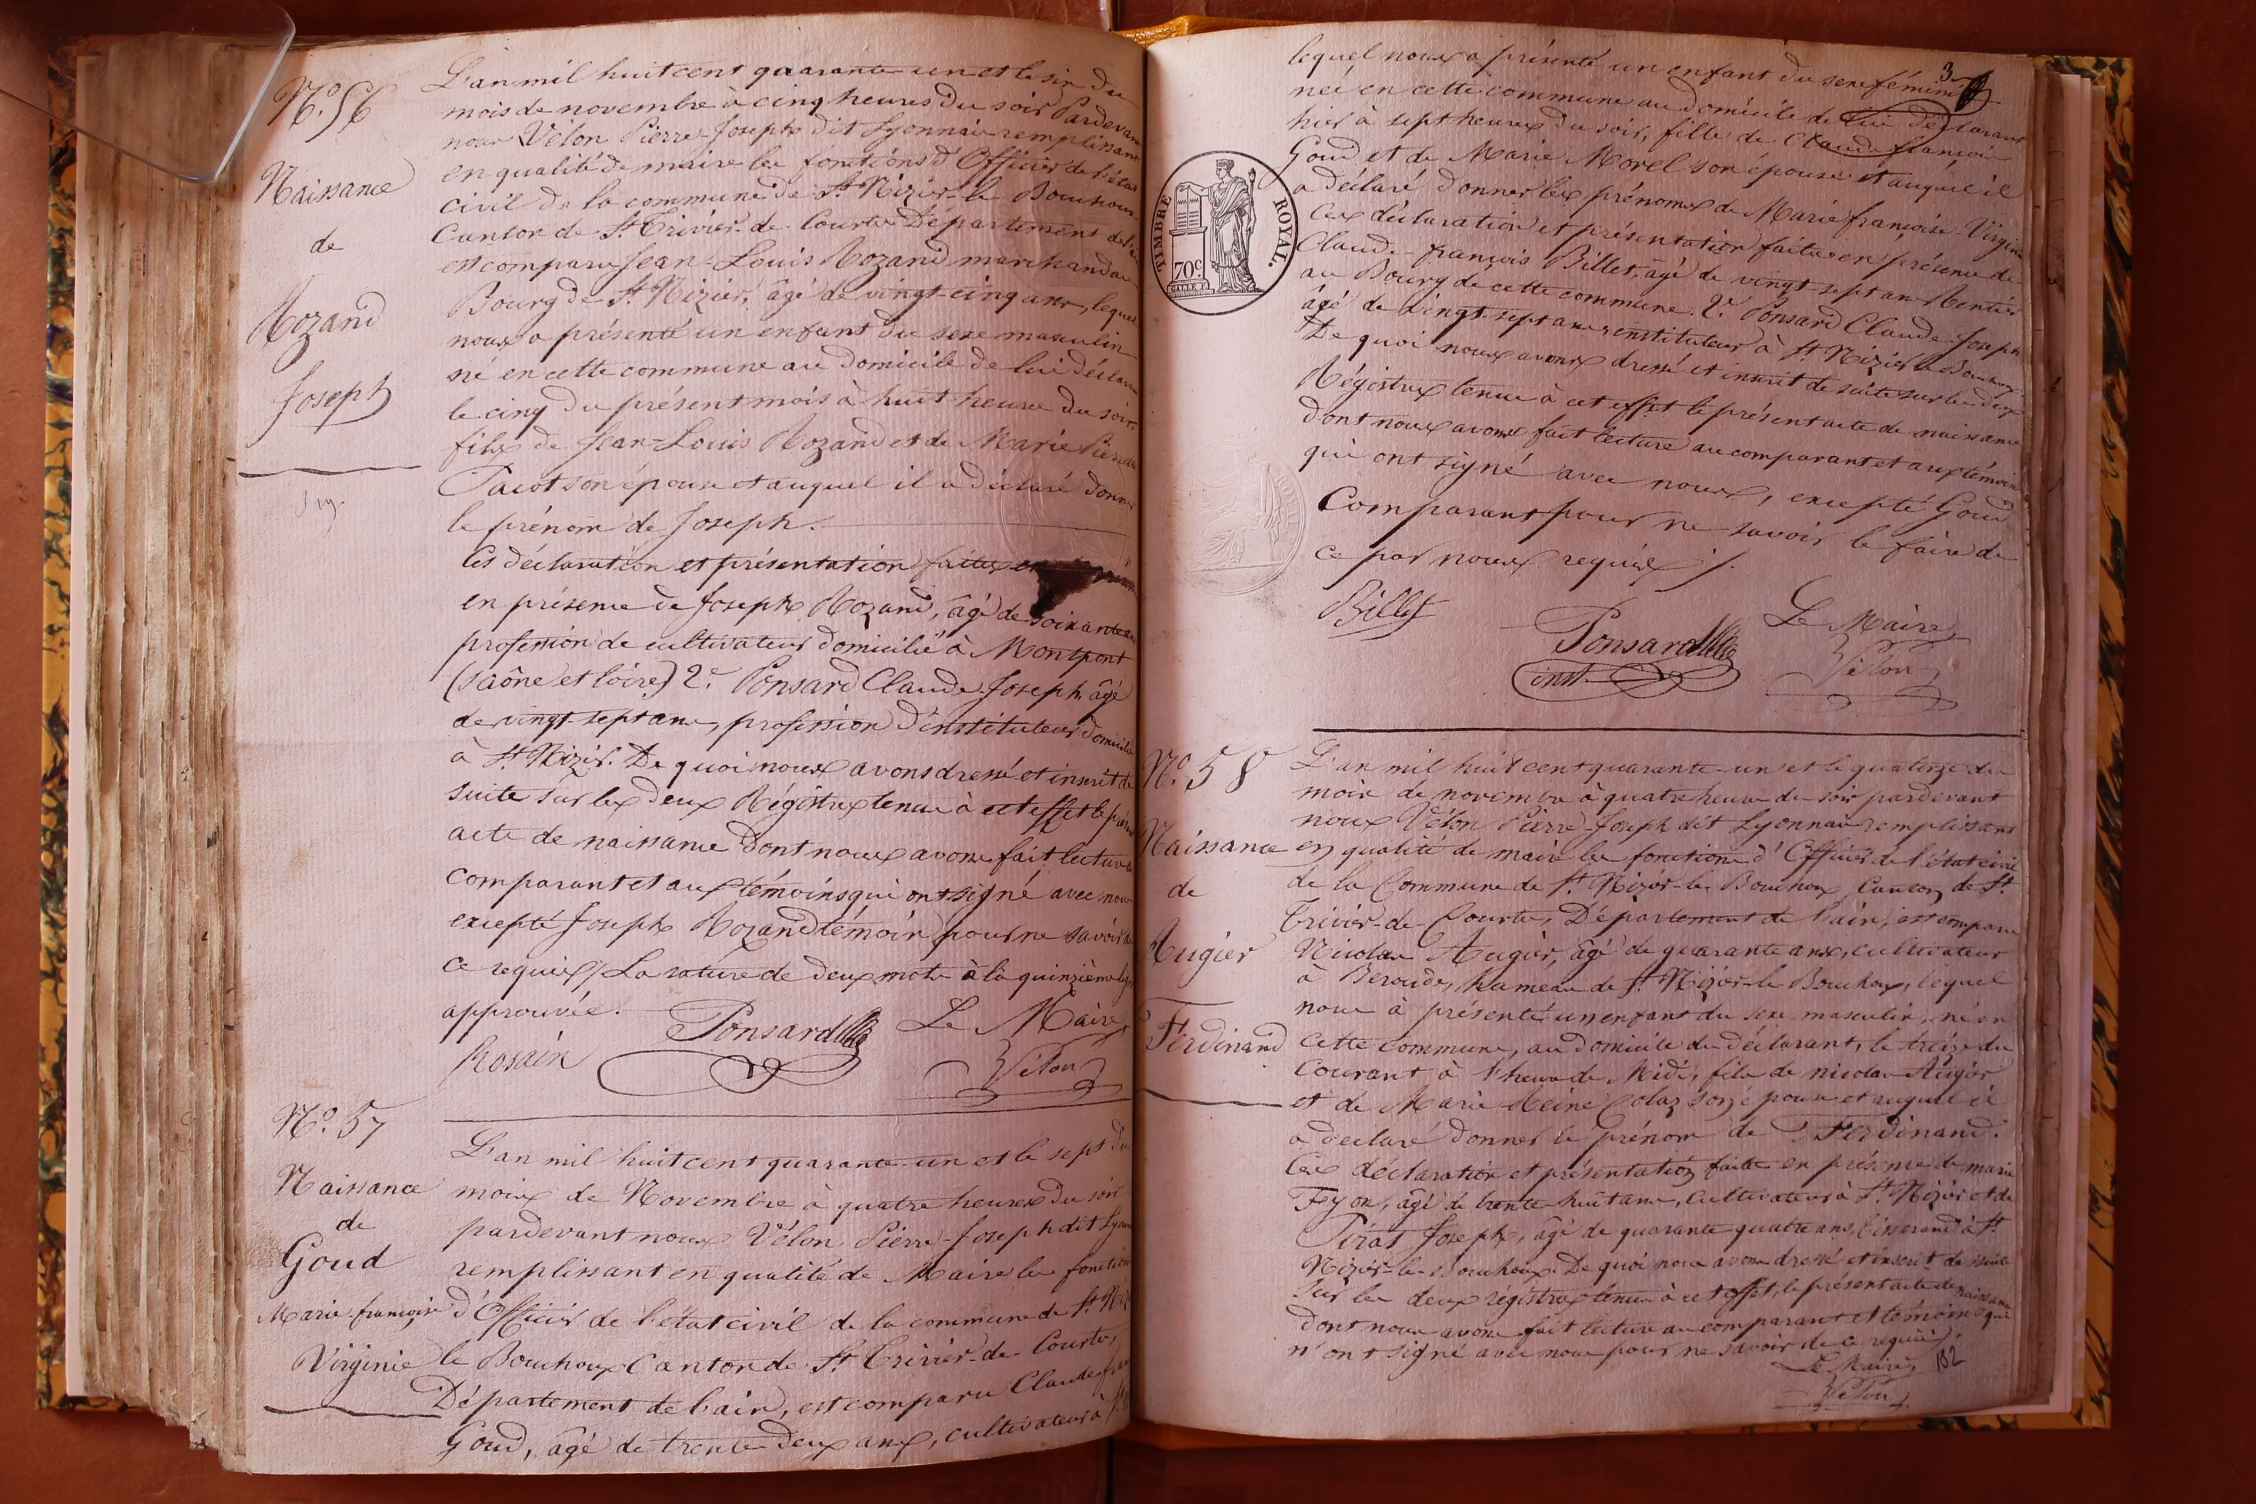 N.o 56
Naissance
de
Rozand
Joseph
L'an mil huit cent quarante-un et le six du
mois de novembre à cinq heures du soir Pardevant
nous Vélon Pierre-Joseph dit Lyonnais remplissant
en qualité de maire les fonctions d'Officier de l'état
civil de la commune de St Nizier-le Bouchoux
Canton de St Trivier-de-Courtes Département de l'ain
est comparu Jean-Louis Rozand marchand au
Bourg de St Nizier, âgé de vingt-cinq ans, lequel
nous a présenté un enfant du sexe masculin
né en cette commune au domicile de lui déclarant
le cinq du présent mois à huit heures du soir
fils de Jean-Louis Rozand et de Marie
Pacot son épouse et auquel il a déclaré donner
le prénom de Joseph.
Ces déclaration et présentation faites en
en présence de Joseph Rozand, âgé de soixante
profession de cultivateur domicilié à Montpont
(saône et loire) 2e Ponsard Claude Joseph âgé
de vingt sept ans, profession d'instituteur domicilié
à St Nizier. De quoi nous avons dressé et inscrit de
suite sur les deux Régistres tenus à cet effet le présent
acte de naissance dont nous avons fait lecture au
comparant et aux témoins qui ont signé avec nous
excepté Joseph Rozand témoin pour ne savoir
ce requis / La rature de deux mots à la quinzième ligne
approuvée.
Ponsard
Le Maire
Vélon
N.o 57
Naissance
de
Goud
Marie-françoise
Virginie
L'an mil huit cent quarante-un et le sept du
mois de Novembre à quatre heures du soir
pardevant nous Vélon Pierre-Joseph dit Lyonnais
remplissant en qualité de Maire les fonctions
d'Officier de l'état civil de la commune de St Nizier
le Bouchoux Canton de St Trivier-de-Courtes,
Département de l'ain, est comparu Claude
Goud, âgé de trente deux ans, cultivateur à
3
lequel nous a présenté un enfant du sexe féminin
née en cette commune au domicile de lui déclarant
hier à sept heures du soir, fille de Claude françois
Goud et de Marie Morel son épouse et auquel il
a déclaré donner les prénoms de Marie françoise Virginie
Ces déclaration et présentation faites en présence de
Claude-françois Billet, âgé de vingt-sept ans Rentier
au Bourg de cette commune. 2e Ponsard Claude-Joseph
âgé de vingt-sept ans instituteur à St Nizier le Bouchoux
De quoi nous avons dressé et inscrit de suite sur les deux
Régistres tenus à cet effet le présent acte de naissance
dont nous avons fait lecture au comparant et aux témoins
qui ont signé avec nous, excepté Goud
Comparant pour ne savoir le faire de
ce par nous requis /.
TIMBRE ROYAL.
70c.
Billet
Ponsard
inst.
Le Maire
Vélon
N.o 58
Naissance
de
Augier
Ferdinand
L'an mil huit cent quarante-un et le quatorze du
mois de novembre à quatre heures du soir pardevant
nous Vélon Pierre-Joseph dit Lyonnais remplissant
en qualité de maire les fonctions d'Officier de l'état civil
de la Commune de St Nizier-le Bouchoux, Canton de St
Trivier-de-Courtes, Département de l'ain, est comparu
Nicolas Augier, âgé de quarante ans, cultivateur
à Beroude, hameau de St Nizier-le Bouchoux, lequel
nous à présenté un enfant du sexe masculin, né en
cette commune, au domicile du déclarant, le treize du
Courant, à 1 heure de Midi, fils de nicolas Augier
et de Marie Reine Colas son épouse et auquel il
a déclaré donner le prénom de Ferdinand.
Ces déclaration et présentation faite en présence de marie
Feyon, âgé de trente-huit ans, Cultivateur à St Nizier et de
Pirat Joseph, âgé de quarante quatre ans, tisserand à St
Nizier-le-Bouchoux. De quoi nous avons dressé et inscrit de suite
sur les deux régistres tenus à cet effet, le présent acte de naissance
dont nous avons fait lecture au comparant et témoins qui
n'ont signé avec nous pour ne savoir de ce requis.
Le Maire,
Vélon
182